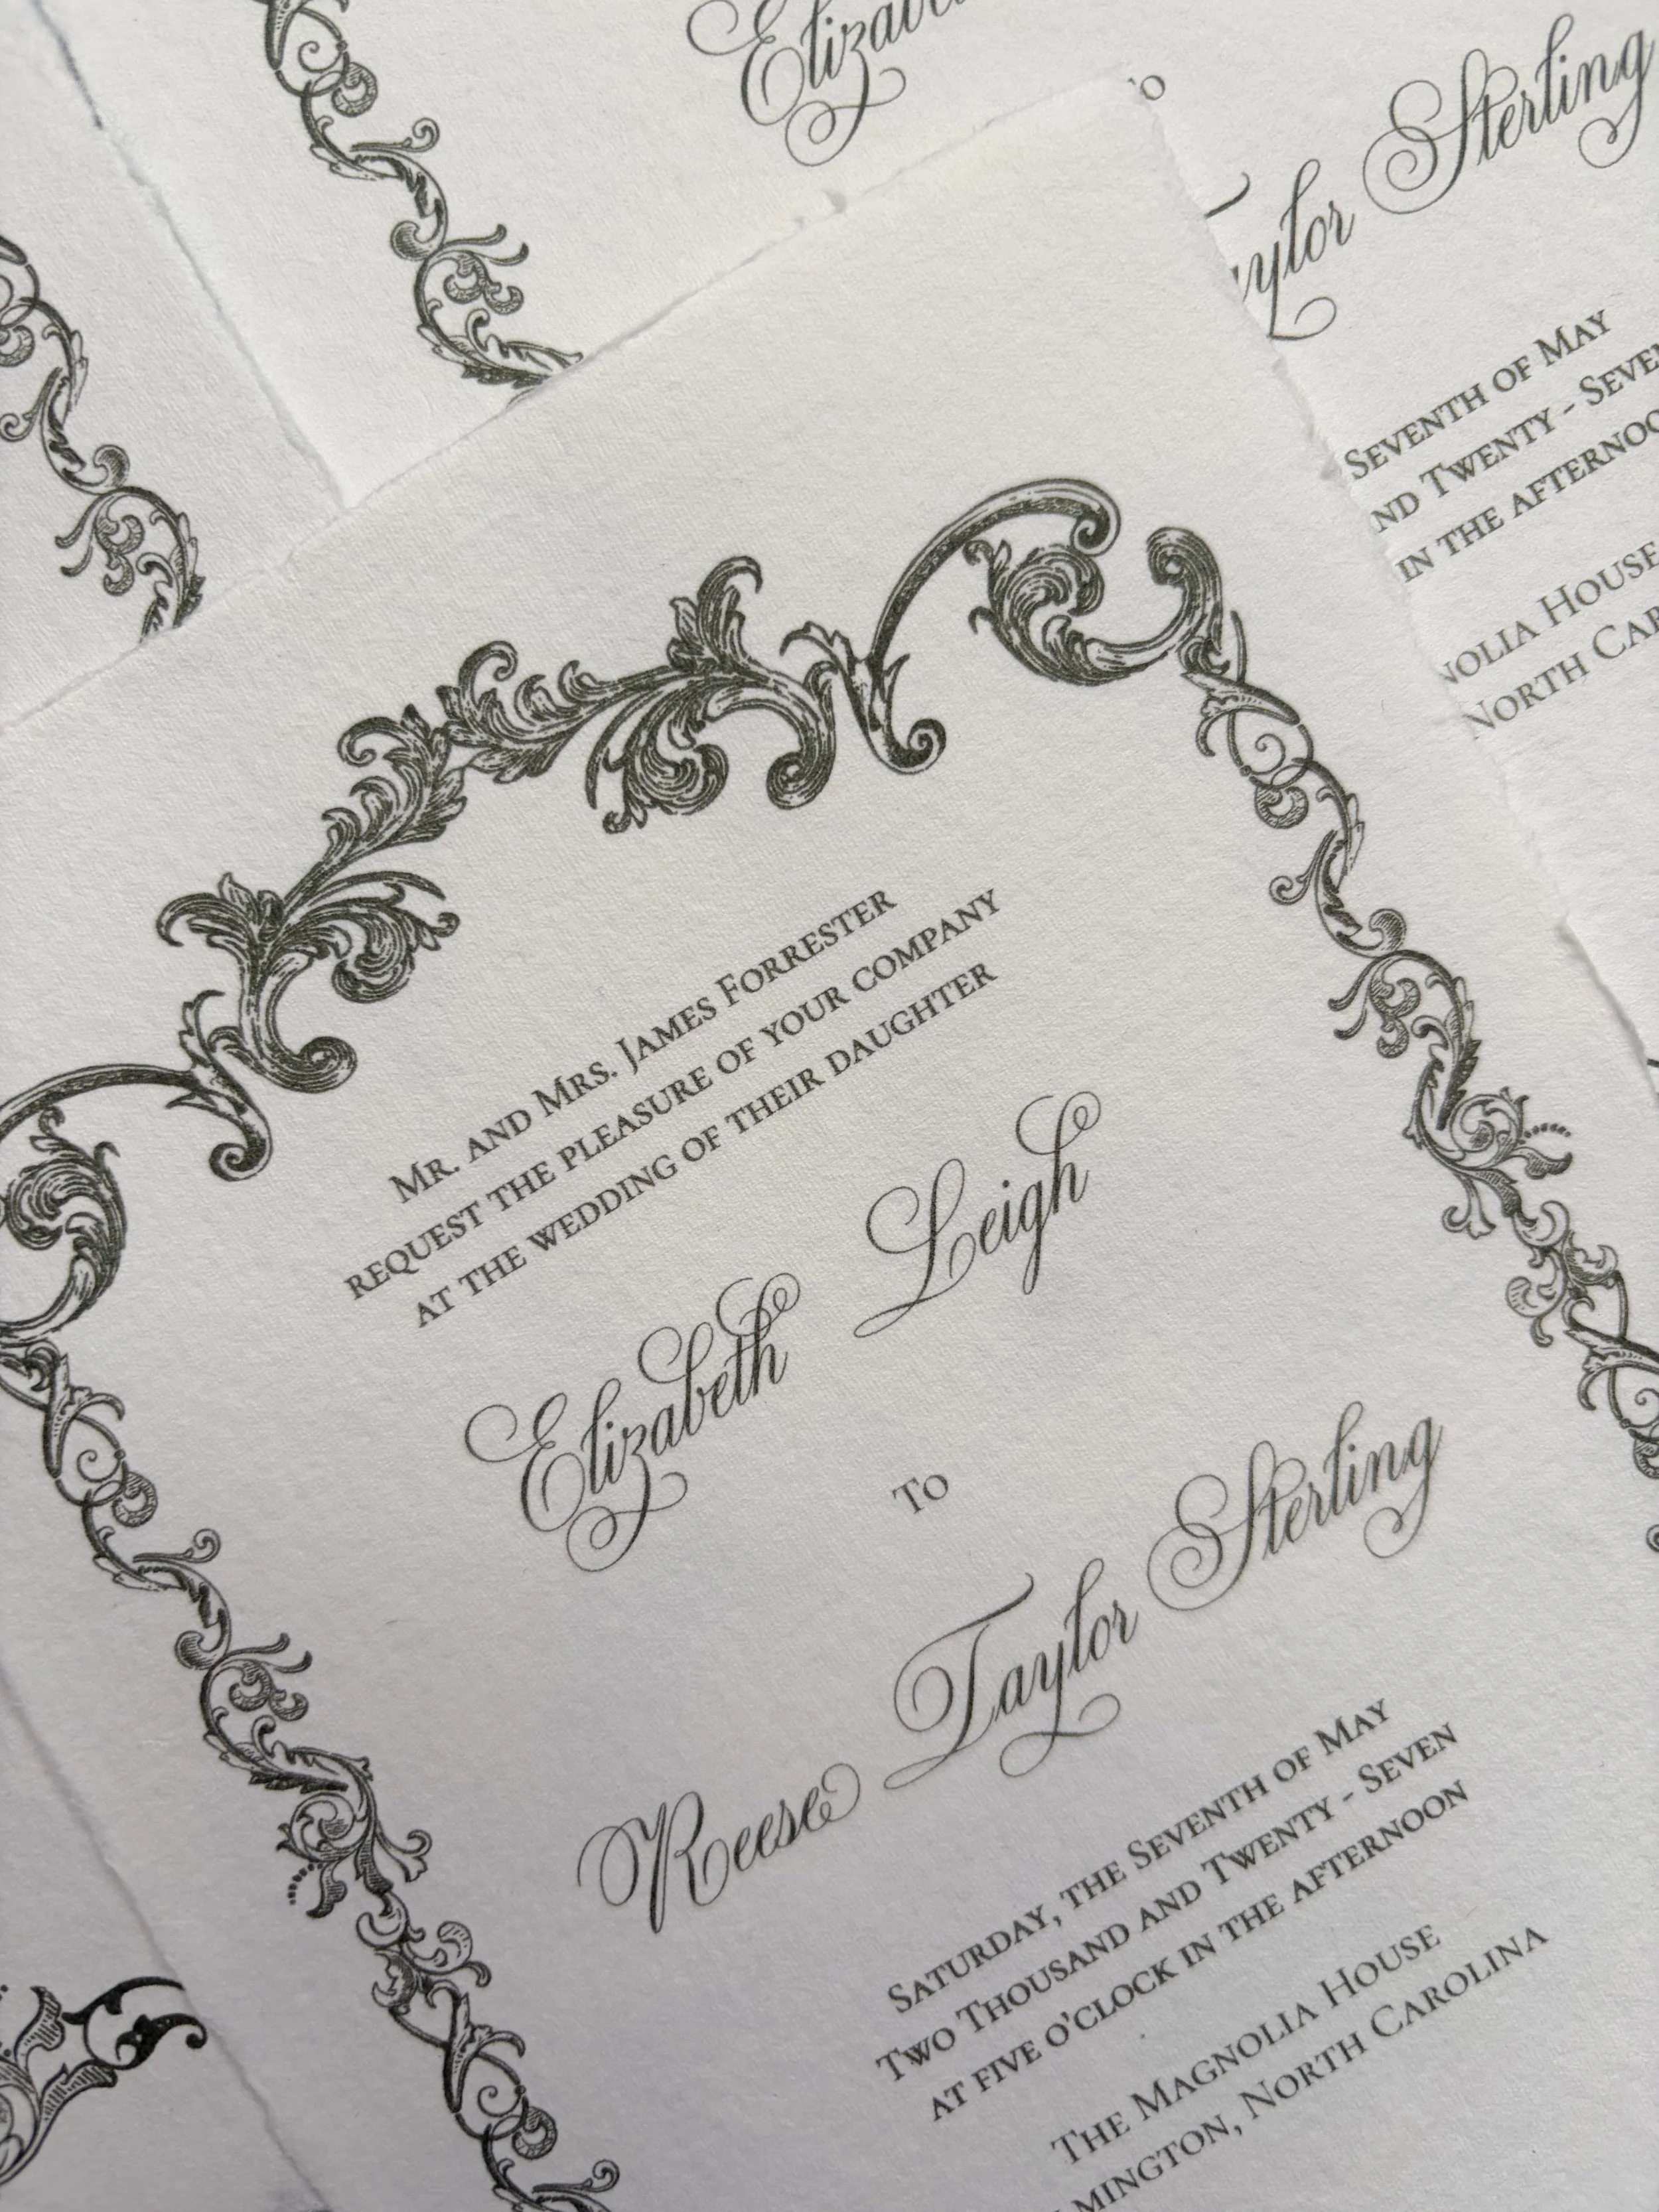 Elizab
To
Taylor Sterling
Seventh of May
nd Twenty - Seven
in the afternoo
nolia House
North Car
Mr. and Mrs. James Forrester
request the pleasure of your company
at the wedding of their daughter
Elizabeth Leigh
To
Reese Taylor Sterling
Saturday, the Seventh of May
Two Thousand and Twenty - Seven
at five o'clock in the afternoon
The Magnolia House
mington, North Carolina